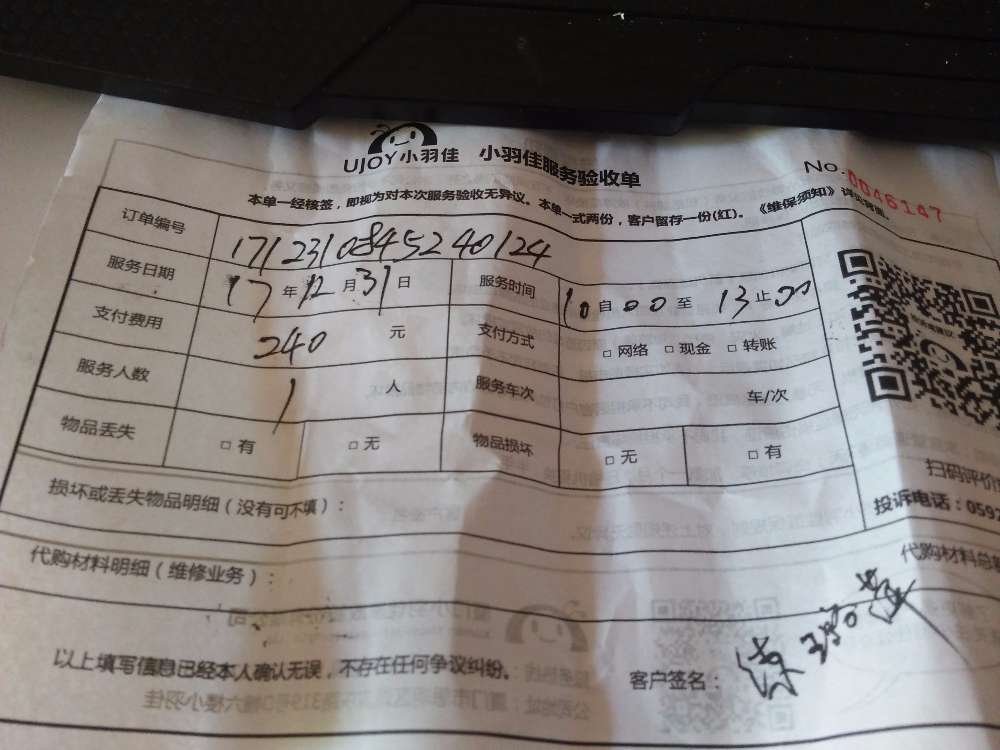 UJOY小羽佳 小羽佳服务验收单
No.0046147
本单一经核签，即视为对本次服务验收无异议。本单一式两份，客户留存一份(红)。《维保须知》详见背面。
订单编号 1712310845240124
服务日期 17年12月31日 服务时间 10自00至13止00
支付费用 240元 支付方式 □网络 □现金 □转账
服务人数 1人 服务车次 车/次
物品丢失 □有 □无 物品损坏 □无 □有
扫码评价
损坏或丢失物品明细（没有可不填）：
投诉电话：0592
代购材料明细（维修业务）：
代购材料总
以上填写信息已经本人确认无误，不存在任何争议纠纷。
客户签名：